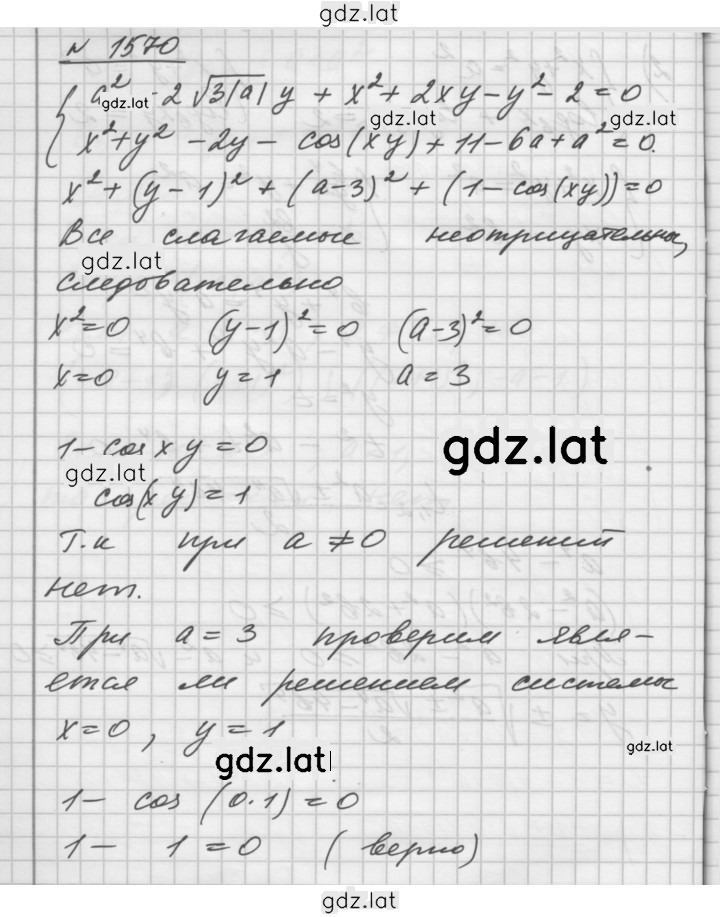 gdz.lat
№ 1570
a² - 2√3|a|y + x² + 2xy - y² - 2 = 0
gdz.lat
gdz.lat
x² + y² - 2y - cos(xy) + 11 - 6a + a² = 0.
x² + (y - 1)² + (a - 3)² + (1 - cos(xy)) = 0
Все слагаемые неотрицательны,
gdz.lat
следовательно
x² = 0 (y - 1)² = 0 (a - 3)² = 0
x = 0 y = 1 a = 3
1 - cos xy = 0
gdz.lat
gdz.lat
cos(xy) = 1
Т.к при a ≠ 0 решений
нет.
При a = 3 проверим явля-
ется ли решением системы
x = 0, y = 1
gdz.lat
gdz.lat
1 - cos (0·1) = 0
1 - 1 = 0 (верно)
gdz.lat